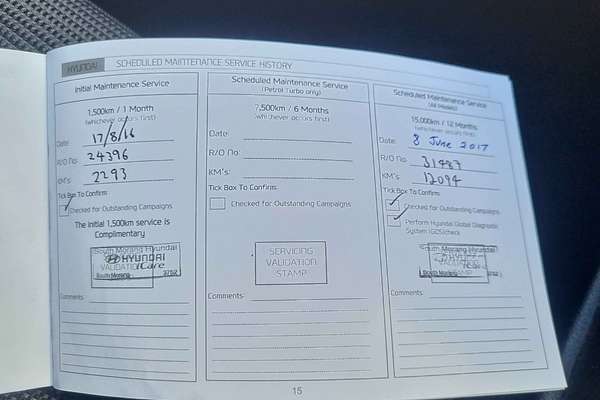 HYUNDAI SCHEDULED MAINTENANCE SERVICE HISTORY
Initial Maintenance Service
1,500km / 1 Month
(whichever occurs first)
Date: 17/8/16
R/O No: 24396
KM's: 2293
Tick Box To Confirm
Checked for Outstanding Campaigns
The Initial 1,500km service is
Complimentary
South Morang Hyundai
HYUNDAI
VALIDATION iCare
South Morang 3752
Comments:
Scheduled Maintenance Service
(Petrol Turbo only)
7,500km / 6 Months
(whichever occurs first)
Date:
R/O No:
KM's:
Tick Box To Confirm
Checked for Outstanding Campaigns
SERVICING
VALIDATION
STAMP
Comments:
Scheduled Maintenance Service
(All Models)
15,000km / 12 Months
(whichever occurs first)
Date: 8 June 2017
R/O No: 31487
KM's: 12094
Tick Box To Confirm
Checked for Outstanding Campaigns
Perform Hyundai Global Diagnostic
System (GDS) check
South Morang Hyundai
South Morang
STAMP
Comments:
15